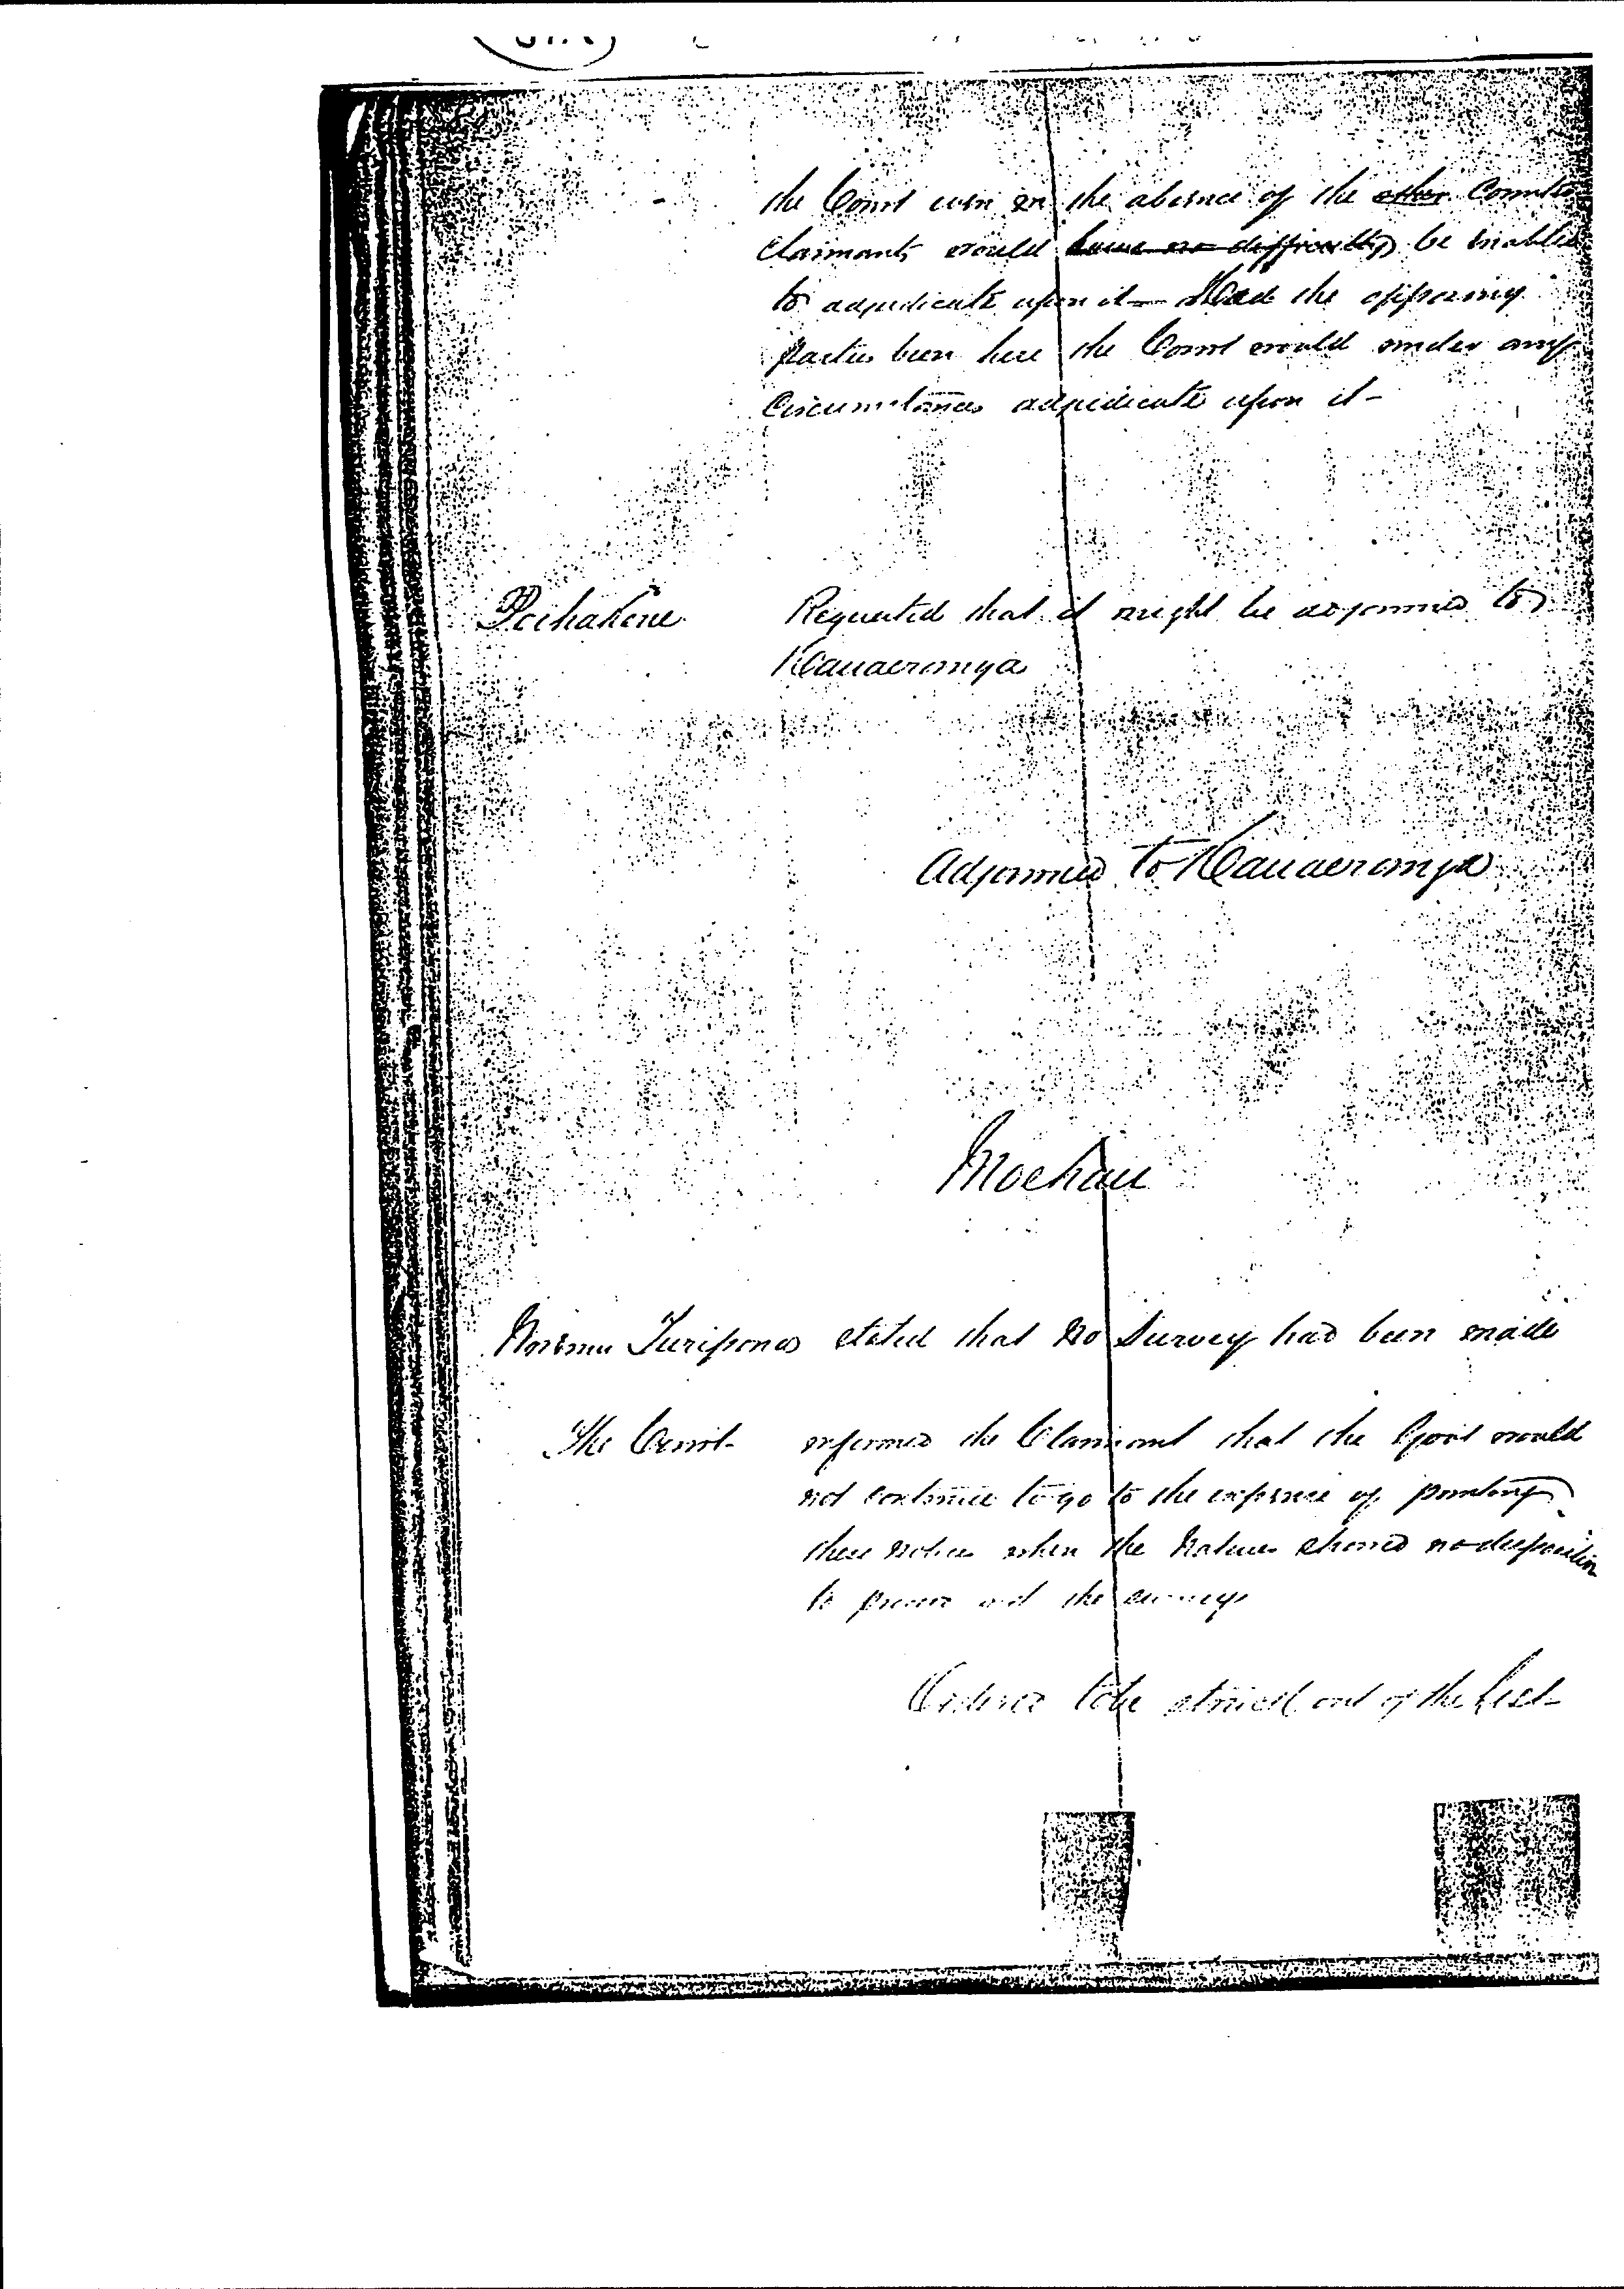 the Court even in the absence of the other Counter
Claimants would have no difficulty be enabled
to adjudicate upon it — Had the opposing
parties been here the Court would under any
Circumstances adjudicate upon it -
Requested that it might be adjourned to
Kauaeranga
Adjourned to Kauaeranga
Moehau
stated that no Survey had been made
The Court informed the Claimant that the Govt would
not continue to go to the expense of printing
these notices when the Natives showed no disposition
to procure the surveys
Ordered to be struck out of the list -